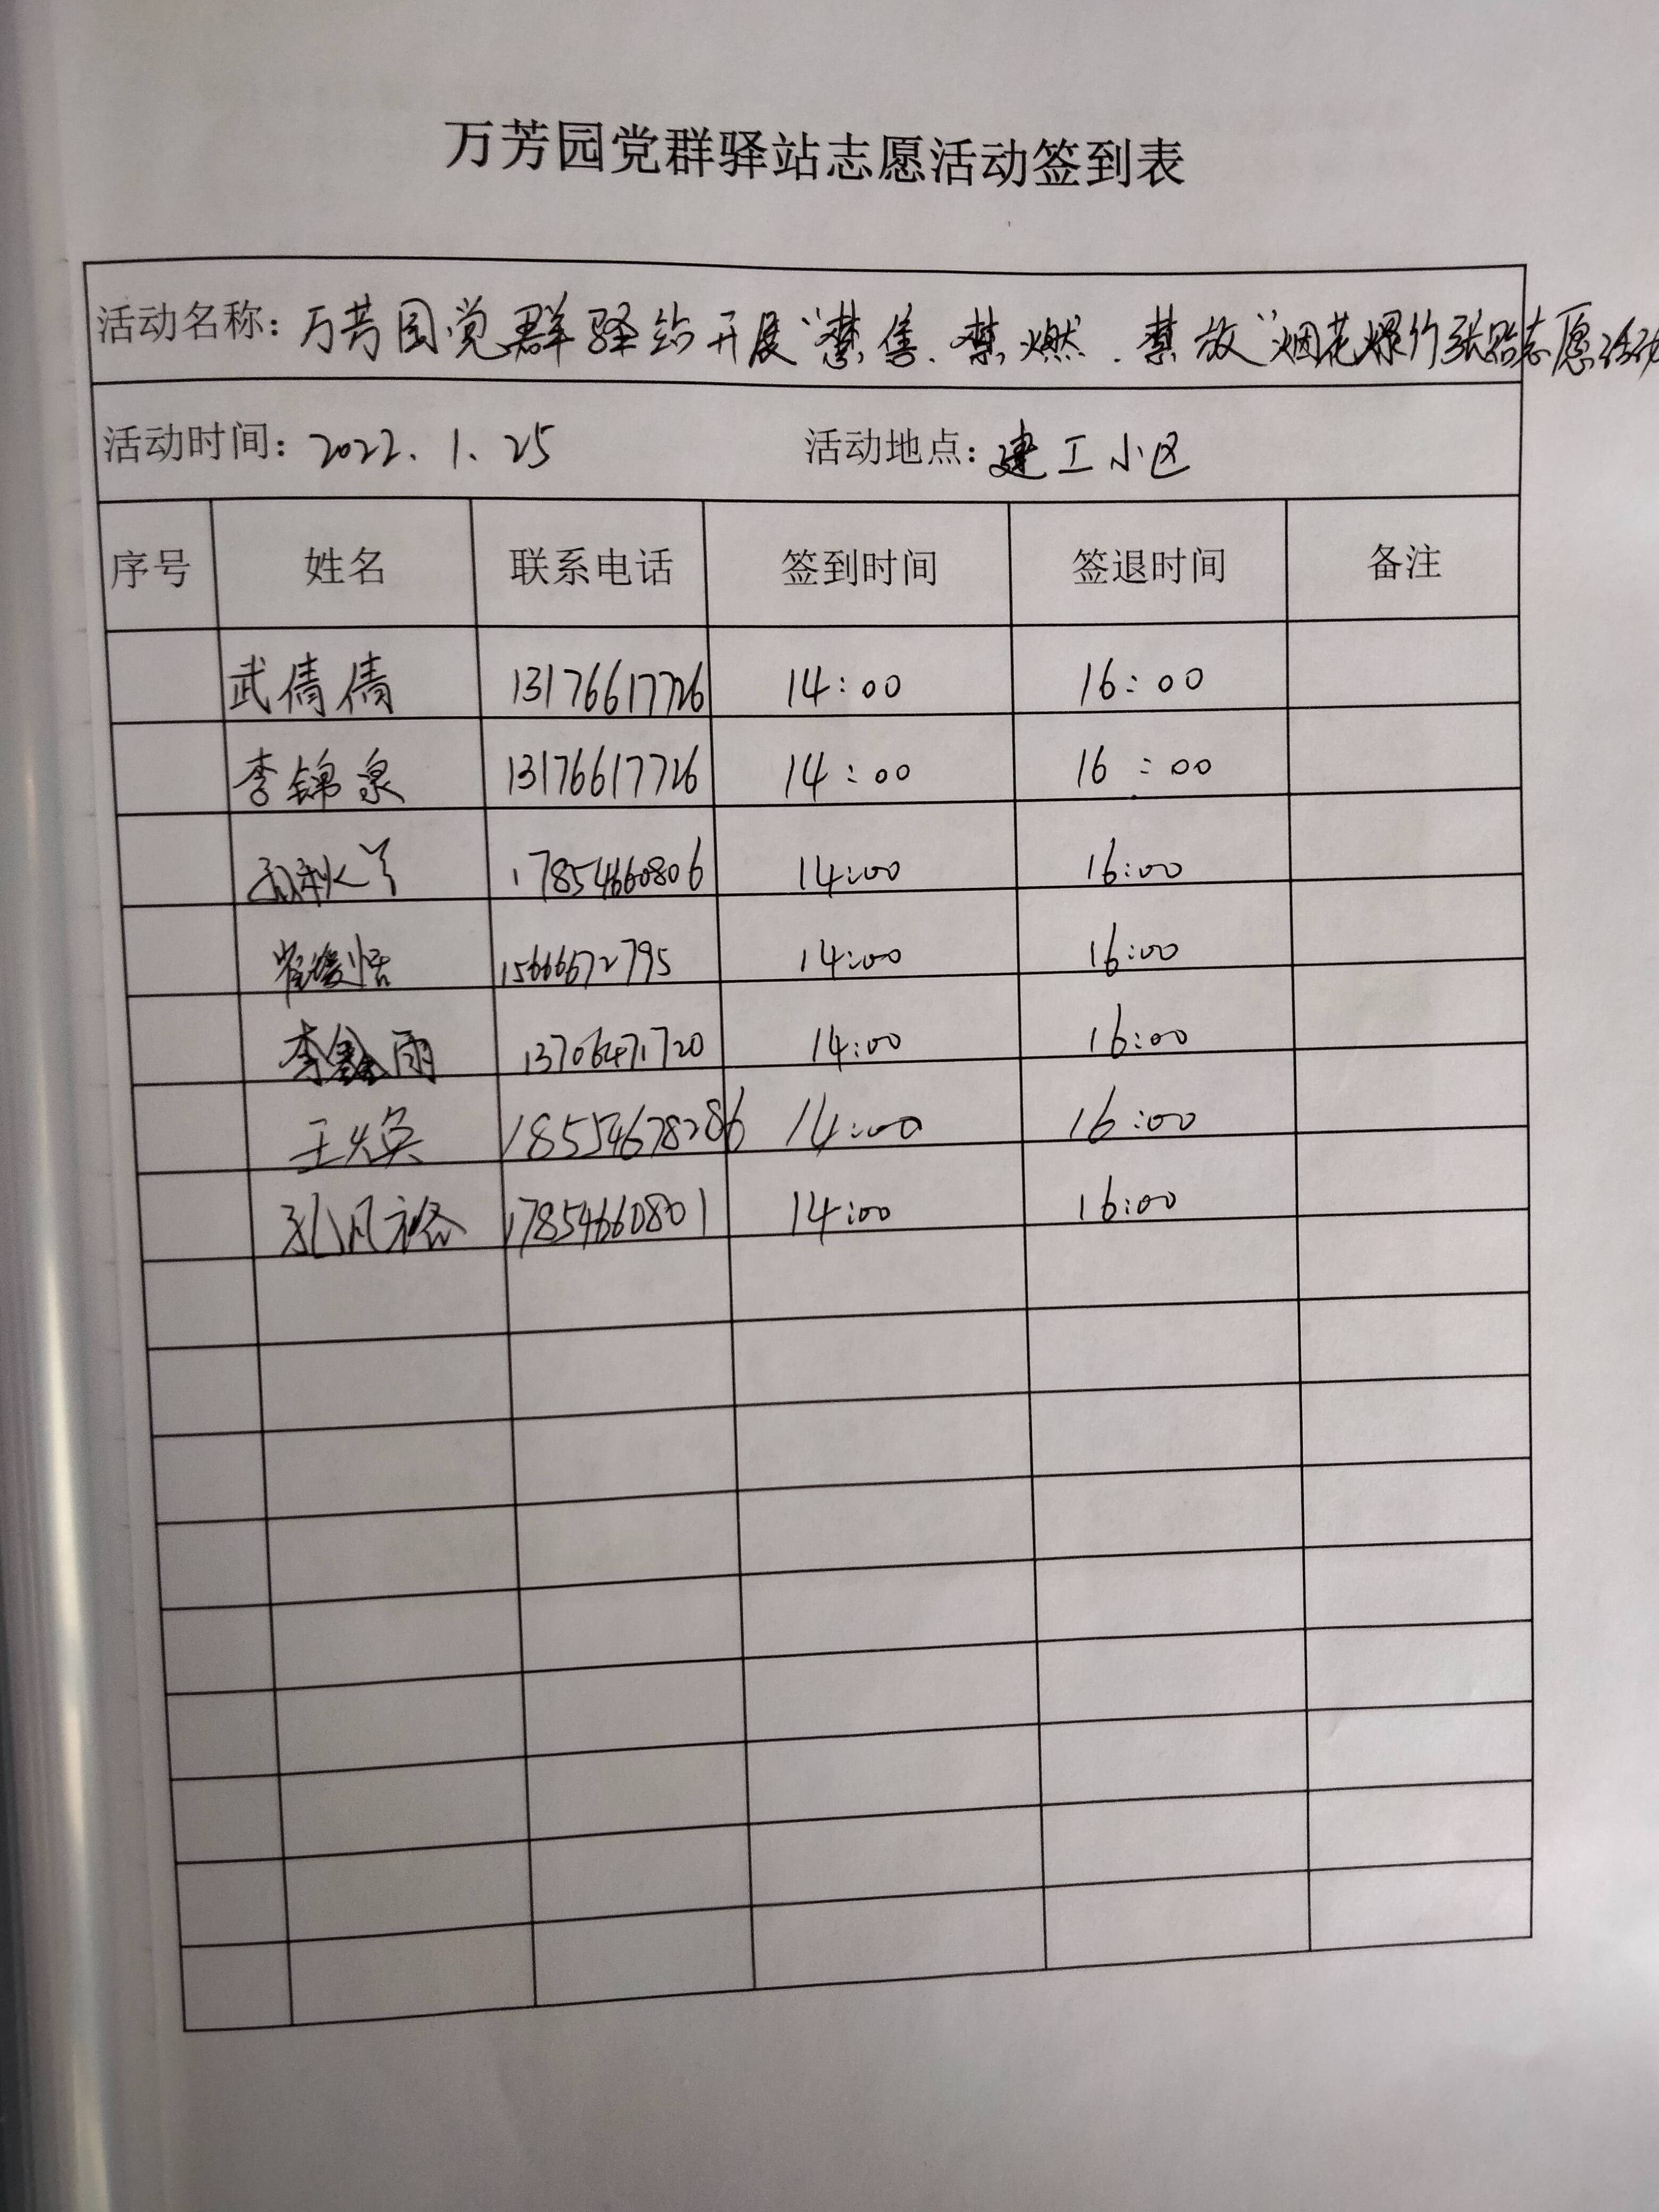 万芳园党群驿站志愿活动签到表
活动名称：万芳园党群驿站开展“禁售、禁燃、禁放”烟花爆竹张贴志愿活动
活动时间：2022.1.25 活动地点：建工小区
序号 姓名 联系电话 签到时间 签退时间 备注
武倩倩 13176617726 14:00 16:00
李锦泉 13176617726 14:00 16:00
17854660806 14:00 16:00
15666672795 14:00 16:00
李鑫雨 13706471720 14:00 16:00
王焕 18554678286 14:00 16:00
孔凡裕 17854660801 14:00 16:00